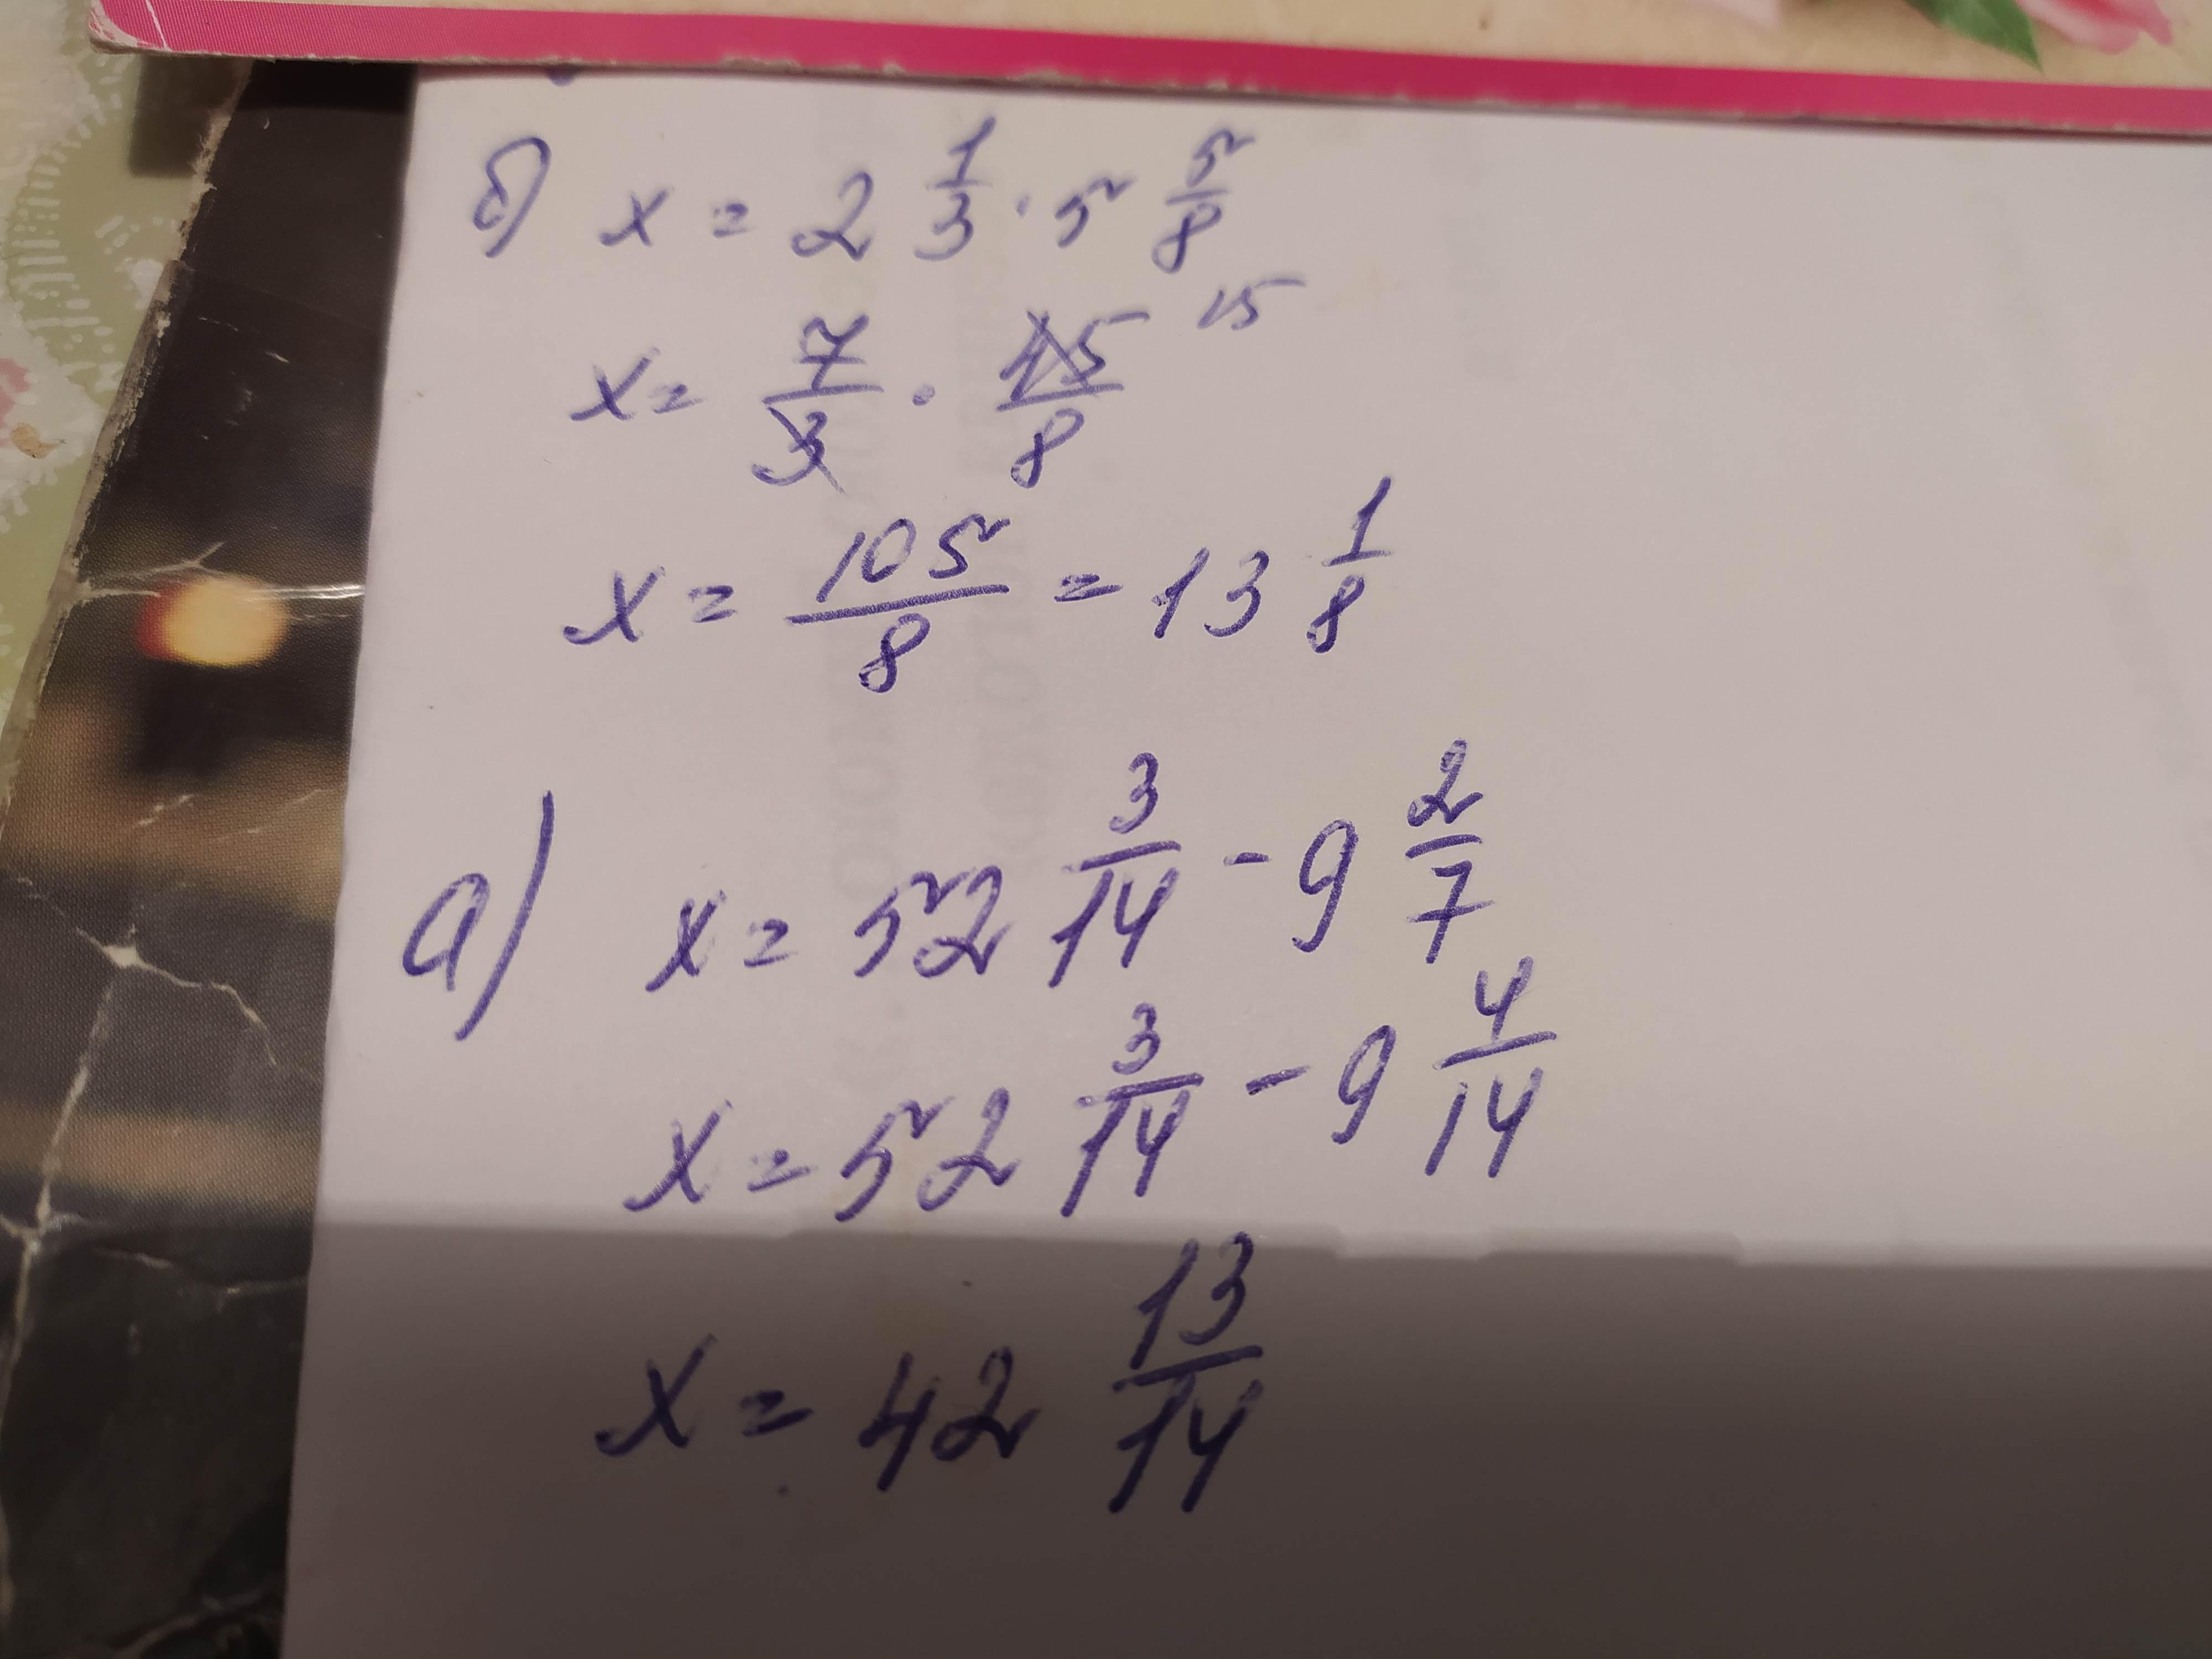 б) x = 2 1/3 · 5 5/8
x = 7/3 · 45/8 15
x = 105/8 = 13 1/8
а) x = 52 3/14 - 9 2/7
x = 52 3/14 - 9 4/14
x = 42 13/14